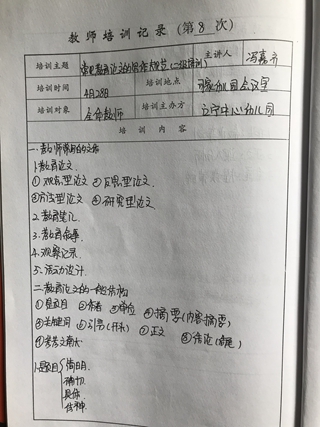 教师培训记录（第8次）
培训主题 常见教育论文的写作 主讲人 冯嘉
培训时间 4月28日 培训地点 幼儿园会议室
培训对象 全体教师 培训主办方 中心幼儿园
培训内容
一、教师常用的文体
1.教育论文.
①观点型论文 ②反思型论文
③方法型论文 ④研究型论文
2.教育笔记.
3.教育叙事.
4.观察记录.
5.活动设计.
二、教育论文的一般结构
①题目 ②作者 ③单位 ④摘要(内容摘要)
⑤关键词 ⑥引言(开头) ⑦正文 ⑧结论(结尾)
⑨参考文献
1.题目 简明.
确切.
具体.
传神.